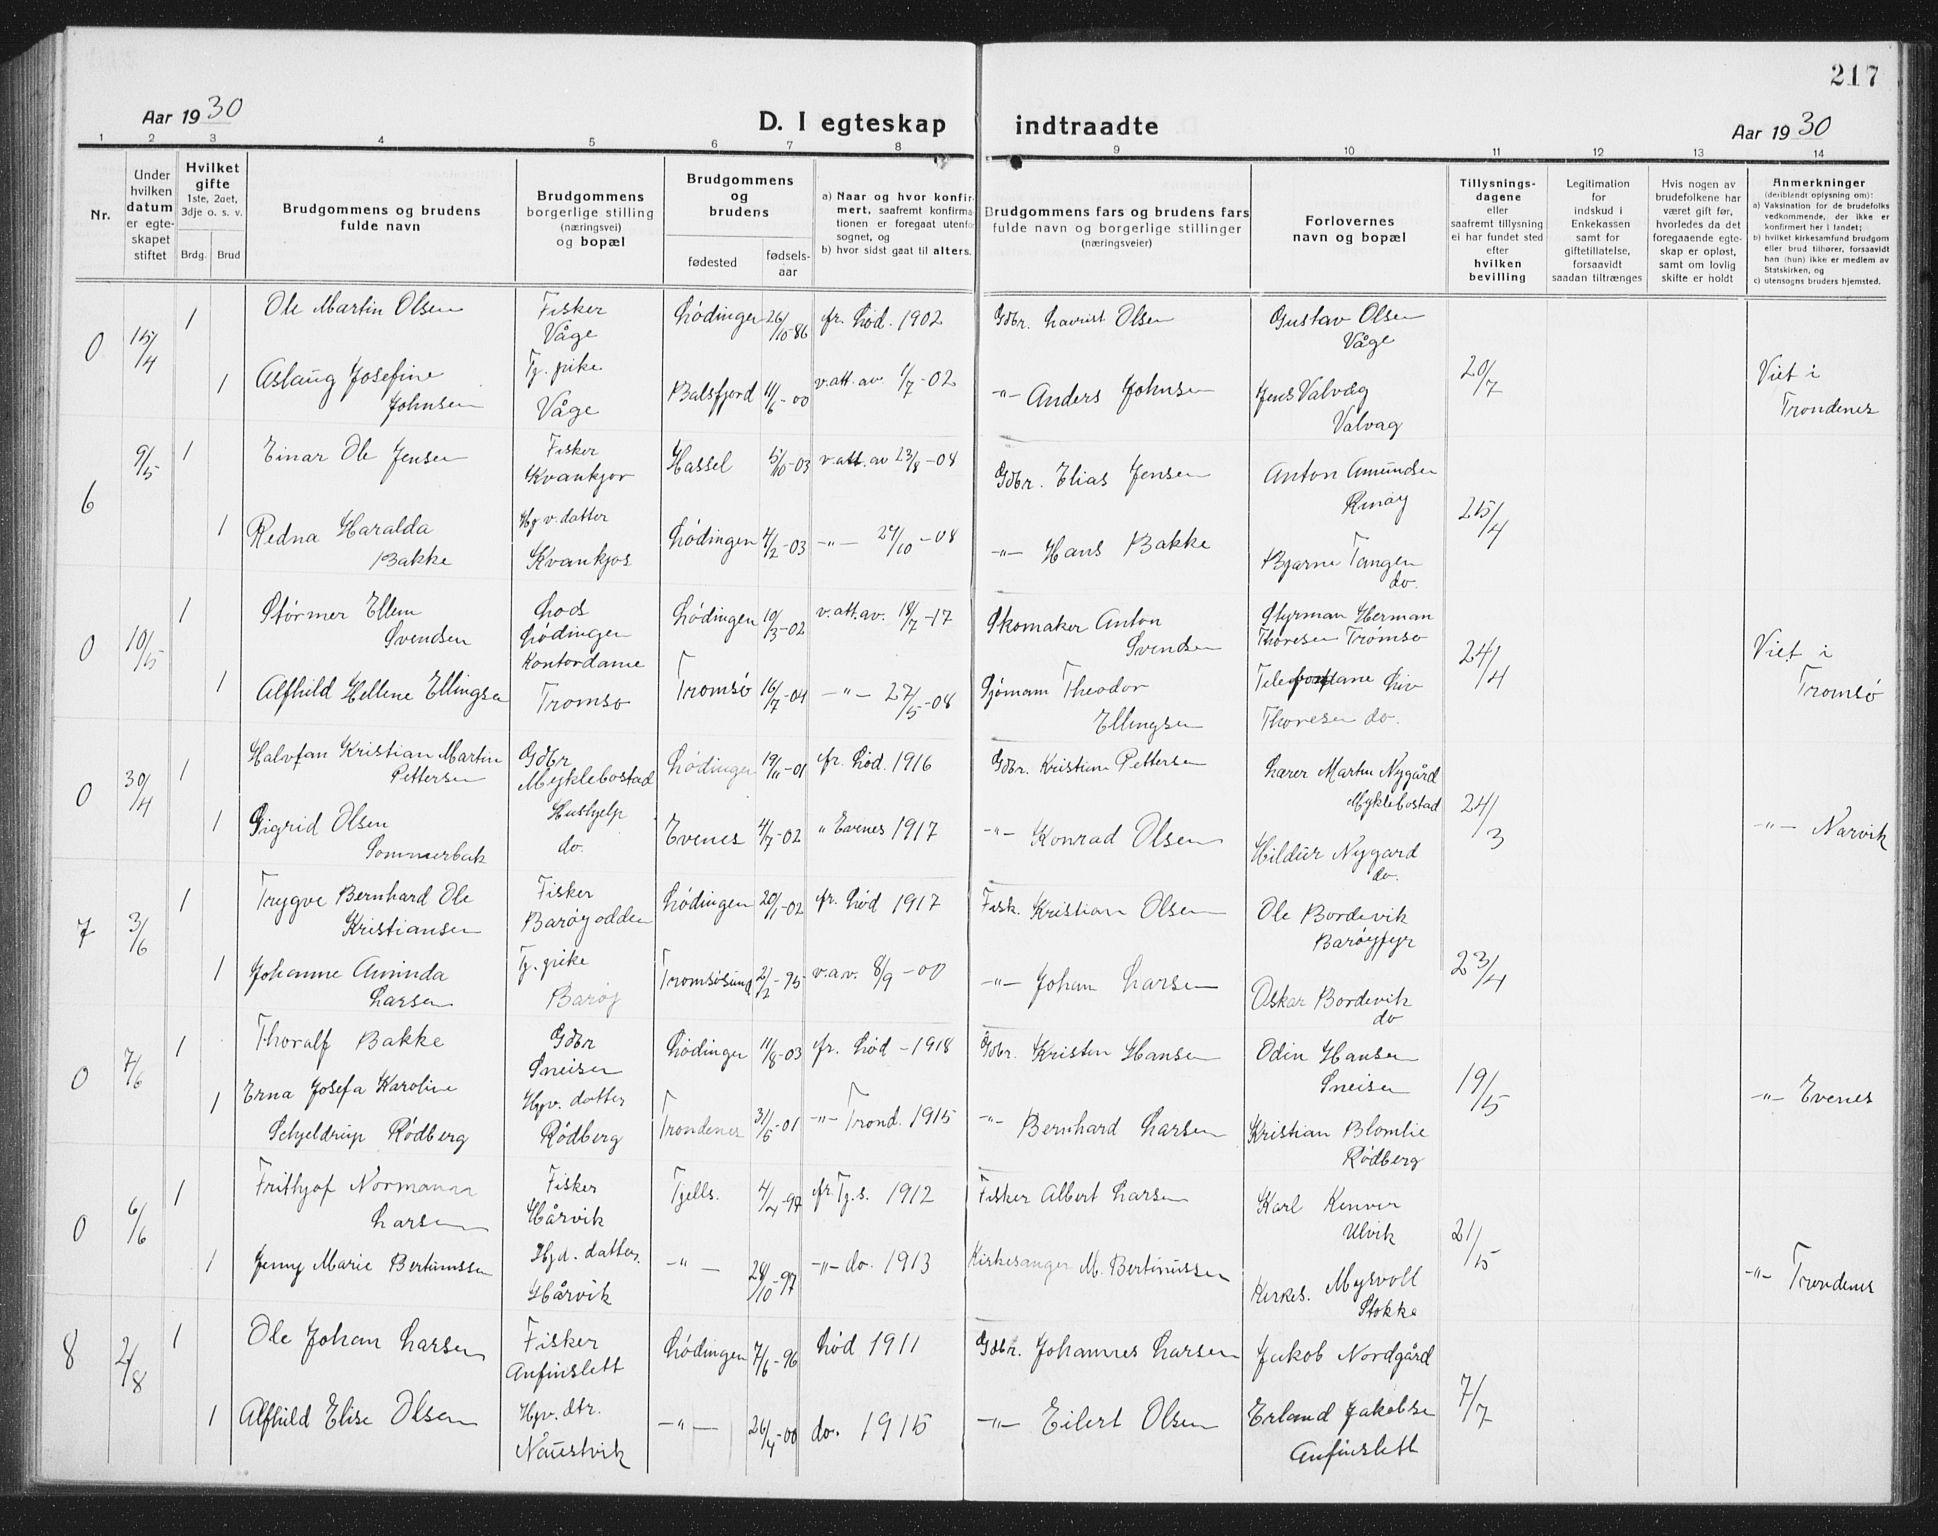 217
Aar 1930
D. I egteskap indtraadte
Aar 1930
1 2 3 4 5 6 7 8 9 10 11 12 13 14
Nr.
Under hvilken datum er egteskapet stiftet
Hvilket gifte
1ste, 2aet, 3dje o. s. v.
Brdg. Brud
Brudgommens og brudens fulde navn
Brudgommens borgerlige stilling (næringsvei) og bopæl
Brudgommens og brudens
fødested
fødsels-aar
a) Naar og hvor konfirmert, saafremt konfirmationen er foregaat utenfor sognet, og
b) hvor sidst gaat til alters.
Brudgommens fars og brudens fars fulde navn og borgerlige stillinger (næringsveier)
Forlovernes navn og bopæl
Tillysnings-dagene eller saafremt tillysning ei har fundet sted efter hvilken bevilling
Legitimation for indskud i Enkekassen samt for giftetillatelse, forsaavidt saadan tiltrænges
Hvis nogen av brudefolkene har været gift før, hvorledes da det foregaaende egteskap er opløst, samt om lovlig skifte er holdt
Anmerkninger
(deriblandt oplysning om):
a) Vaksination for de brudefolks vedkommende, der ikke er konfirmert her i landet;
b) hvilket kirkesamfund brudgom eller brud tilhører, forsaavidt han (hun) ikke er medlem av Statskirken, og
c) utensogns bruders hjemsted.
0 15/4 1 Ole Martin Olsen Fisker Våge Lødingen 26/10-86 fr. Lød. 1902 Gdbr. Lavrist Olsen Gustav Olsen Våge
1 Aslaug Josefine Johnsen Tj. pike Våge Balsfjord 11/6-00 v. att. av 1/7-02 -"- Anders Johnsen Jens Valvåg Valvag 20/7 Viet i Trondenes
6 9/5 1 Einar Ole Jensen Fisker Kvankjos Hassel 5/10-03 v. att. av 23/8-08 Gdbr. Elias Jensen Anton Amundsen Rinøy
1 Redna Haralda Bakke Hj v. datter Kvankjos Lødingen 4/2-03 -"- 27/10-08 -"- Hans Bakke Bjarne Tangen do. 25/4
0 10/5 1 Størmer Ellem Svendsen Lods Lødingen Lødingen 10/3-02 v. att. av. 18/7-17 Skomaker Anton Svendsen Styrman Herman Thoresen Tromsø
1 Alfhild Hellene Ellingsen Kontordame Tromsø Tromsø 16/7-04 -"- 27/5-08 Sjømann Theodor Ellingsen Telefondame Liv Thoresen do. 24/4 Viet i Tromsø
0 30/4 1 Halvfan Kristian Martin Pettersen Gdbr Myklebostad Lødingen 19/11-01 fr. Lød. 1916 Gdbr. Kristian Pettersen Lærer Martin Nygård Myklebostad
1 Sigrid Olsen Sommerbak Hushjelp do. Evenes 4/7-02 " Evenes 1917 -"- Konrad Olsen Hildur Nygard do. 24/3 -"- Narvik
7 3/6 1 Trygve Bernhard Ole Kristiansen Fisker Barøyodden Lødingen 20/1-02 fr. Lød 1917 Fisk. Kristian Olsen Ole Bordevik Barøyfyr
1 Johanne Aminda Larsen Tj. pike Barøy Tromsøsund 2/2-95 v. a v. 8/9-00 -"- Johan Larsen Oskar Bordevik do 23/4
0 7/6 1 Thoralf Bakke Gdbr Sneisen Lødingen 11/8-03 fr. Lød-1918 Gdbr. Kristen Hansen Odin Hansen Sneisen
1 Erna Josefa Karoline Schjeldrup Rødberg Hjv. datter Rødberg Trondenes 31/5-01 -"- Trond. 1915 -"- Bernhard Larsen Kristian Blomlie Rødberg 19/5 -"- Evenes
0 6/6 1 Frithjof Normann Larsen Fisker Hårvik Tjells. fr. Tj. s. 1912 Fisker Albert Larsen Karl Kenver Ulvik
1 Jenny Marie Bertinussen Hjd. datter. Hårvik -"- 28/10-97 -"- do. 1913 Kirkesanger M. Bertinussen Kirkes. Mysvoll Stokke 21/5 -"- Trondenes
8 2/8 1 Ole Johan Larsen Fisker Anfinslett Lødingen 7/6-96 Lød 1911 Gdbr. Johannes Larsen Jakob Nordgård
1 Alfhild Elise Olsen Hjv. dtr. Naustvik -"- 26/4-00 do. 1915 -"- Eilert Olsen Erland Jakobsen Anfinslett 7/7